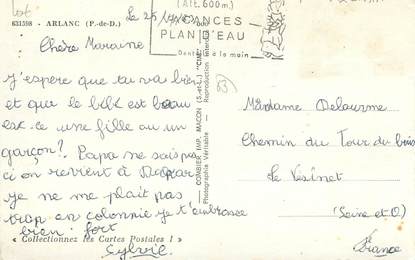 Lot
631598 - ARLANC (P.-de-D.)
(Alt. 600m)
VACANCES
PLAN D'EAU
Dentelle à la main
Le 25
Chère Maraine
j'espère que tu va bien
et que le bébé est beau
est ce une fille ou un
garçon? Papa ne sais pas
ci on revient à
je ne me plait pas
trop en colonnie je t'embrasse
bien fort
Sylvie
« Collectionnez les Cartes Postales ! »
COMBIER IMP. MACON (S.-et-L.) "CIM"
Photographie Véritable - Reproduction Interdite
B
Madame Delaurme
Chemin du Tour du bois
Le Vésinet
(Seine et O)
France